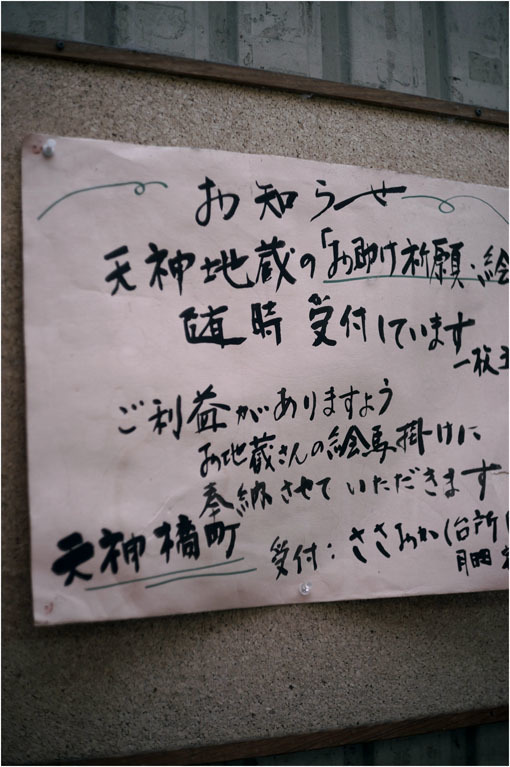 お知らせ
天神地蔵の「お助け祈願・絵
随時受付しています
一枚
ご利益がありますよう
お地蔵さんの絵馬掛けに
奉納させていただきます
天神橋町
受付：ささあか(台所